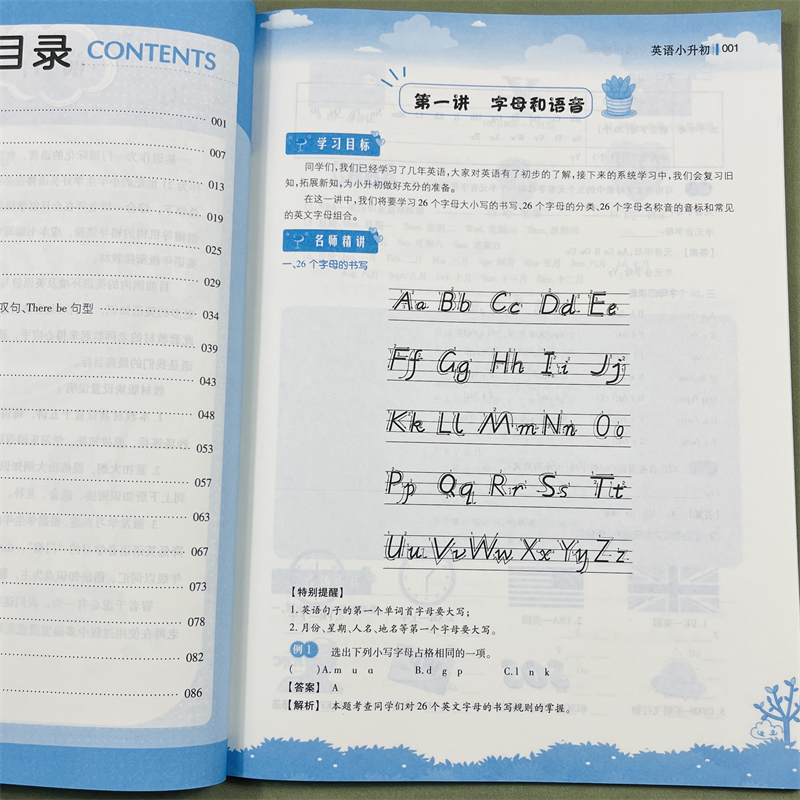 目录 CONTENTS
001
007
013
019
025
029
叹句、There be 句型 034
039
043
048
053
057
063
067
073
078
082
086
英语小升初 001
第一讲 字母和语音
学习目标
同学们,我们已经学习了几年英语,大家对英语有了初步的了解,接下来的系统学习中,我们会复习旧
知,拓展新知,为小升初做好充分的准备。
在这一讲中,我们将要学习26个字母大小写的书写、26个字母的分类、26个字母名称音的音标和常见
的英文字母组合。
名师精讲
一、26个字母的书写
Aa Bb Cc Dd Ee
Ff Gg Hh Ii Jj
Kk Ll Mm Nn Oo
Pp Qq Rr Ss Tt
Uu Vv Ww Xx Yy Zz
【特别提醒】
1. 英语句子的第一个单词首字母要大写;
2. 月份、星期、人名、地名等第一个字母要大写。
例1 选出下列小写字母占格相同的一项。
( )A. m u a B. d g p C. l n k
【答案】 A
【解析】 本题考查同学们对26个英文字母的书写规则的掌握。